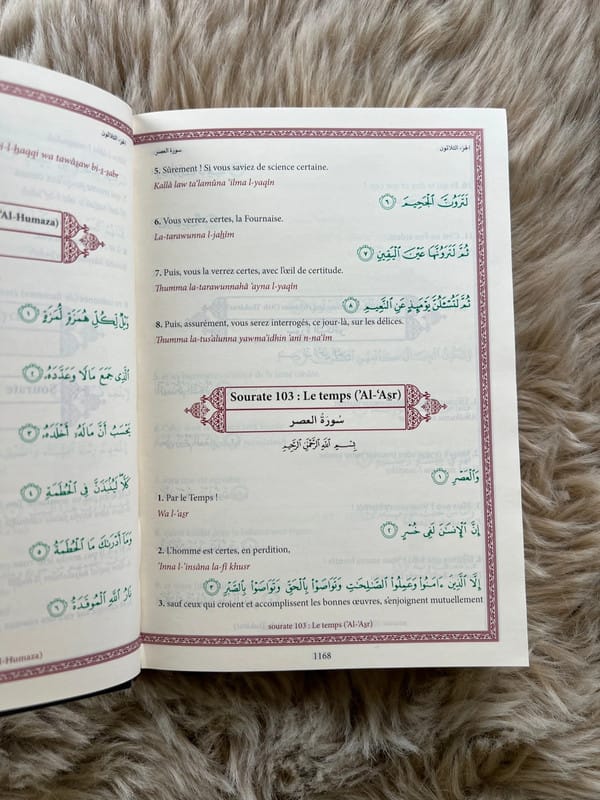 الجزء الثلاثون
سورة العصر
5. Sûrement ! Si vous saviez de science certaine.
Kallâ law ta'lamûna 'ilma l-yaqîn
لَتَرَوُنَّ ٱلْجَحِيمَ ٦
6. Vous verrez, certes, la Fournaise.
La-tarawunna l-jaḥîm
ثُمَّ لَتَرَوُنَّهَا عَيْنَ ٱلْيَقِينِ ٧
7. Puis, vous la verrez certes, avec l'œil de certitude.
Thumma la-tarawunnahâ 'ayna l-yaqîn
ثُمَّ لَتُسْـَٔلُنَّ يَوْمَئِذٍ عَنِ ٱلنَّعِيمِ ٨
8. Puis, assurément, vous serez interrogés, ce jour-là, sur les délices.
Thumma la-tus'alunna yawma'idhin 'ani n-na'îm
Sourate 103 : Le temps ('Al-'Aṣr)
سُورَةُ العصر
بِسْمِ ٱللَّهِ ٱلرَّحْمَٰنِ ٱلرَّحِيمِ
وَٱلْعَصْرِ ١
1. Par le Temps !
Wa l-'aṣr
إِنَّ ٱلْإِنسَٰنَ لَفِى خُسْرٍ ٢
2. L'homme est certes, en perdition,
'Inna l-'insâna la-fî khusr
إِلَّا ٱلَّذِينَ ءَامَنُوا۟ وَعَمِلُوا۟ ٱلصَّٰلِحَٰتِ وَتَوَاصَوْا۟ بِٱلْحَقِّ وَتَوَاصَوْا۟ بِٱلصَّبْرِ ٣
3. sauf ceux qui croient et accomplissent les bonnes œuvres, s'enjoignent mutuellement
sourate 103 : Le temps ('Al-'Aṣr)
1168
الجزء الثلاثون
bi-l-ḥaqqi wa tawâṣaw bi-ṣ-ṣabr
'Al-Humaza)
وَيْلٌ لِّكُلِّ هُمَزَةٍ لُّمَزَةٍ ١
ٱلَّذِى جَمَعَ مَالًا وَعَدَّدَهُۥ ٢
يَحْسَبُ أَنَّ مَالَهُۥٓ أَخْلَدَهُۥ ٣
كَلَّا لَيُنۢبَذَنَّ فِى ٱلْحُطَمَةِ ٤
وَمَآ أَدْرَىٰكَ مَا ٱلْحُطَمَةُ ٥
نَارُ ٱللَّهِ ٱلْمُوقَدَةُ ٦
Al-Humaza)